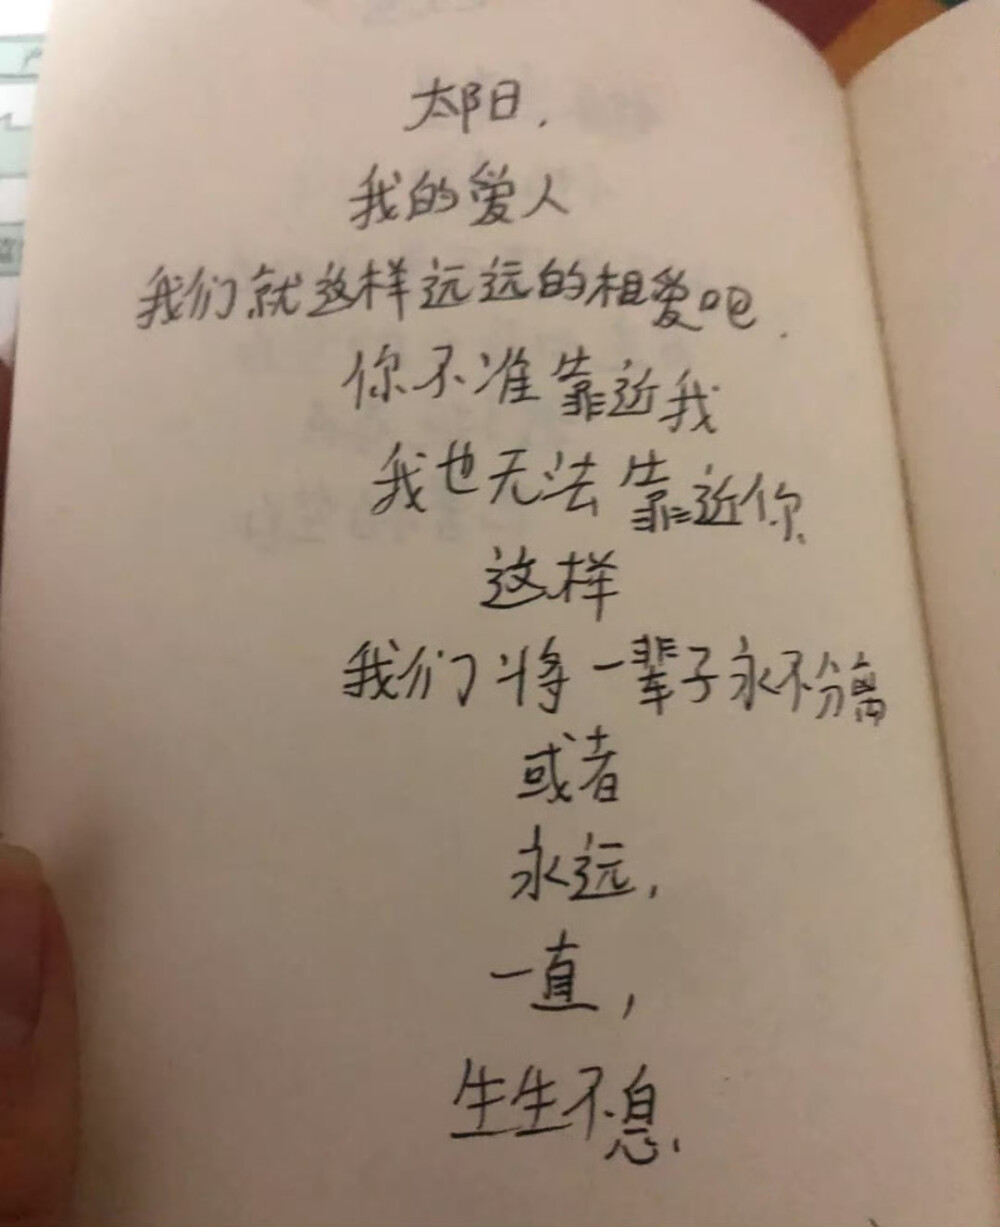 太阳.
我的爱人
我们就这样远远的相爱吧.
你不准靠近我
我也无法靠近你.
这样
我们将一辈子永不分离
或者
永远,
一直,
生生不息.